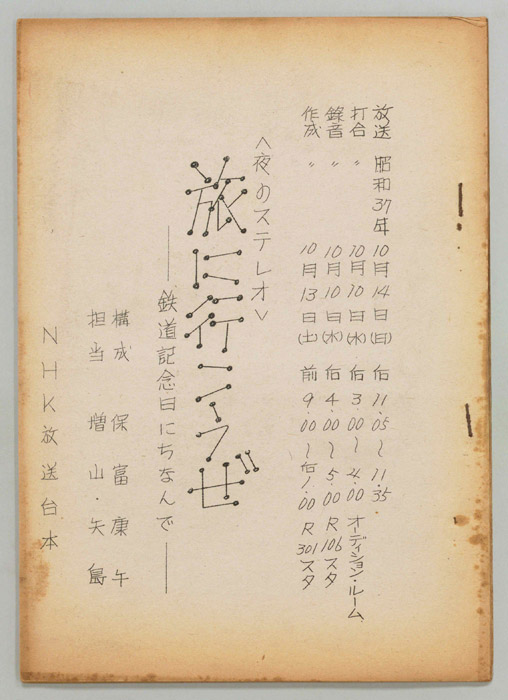 放送 昭和37年 10月14日(日) 后11.05〜11.35
打合 〃 10月10日(水) 后3.00〜4.00 オーディション・ルーム
録音 〃 10月10日(水) 后4.00〜5.00 R106スタ
作成 〃 10月13日(土) 前9.00〜后1.00 R301スタ
<夜のステレオ>
旅に行こうぜ
——鉄道記念日にちなんで——
構成 保富康午
担当 増山・矢島
NHK放送台本